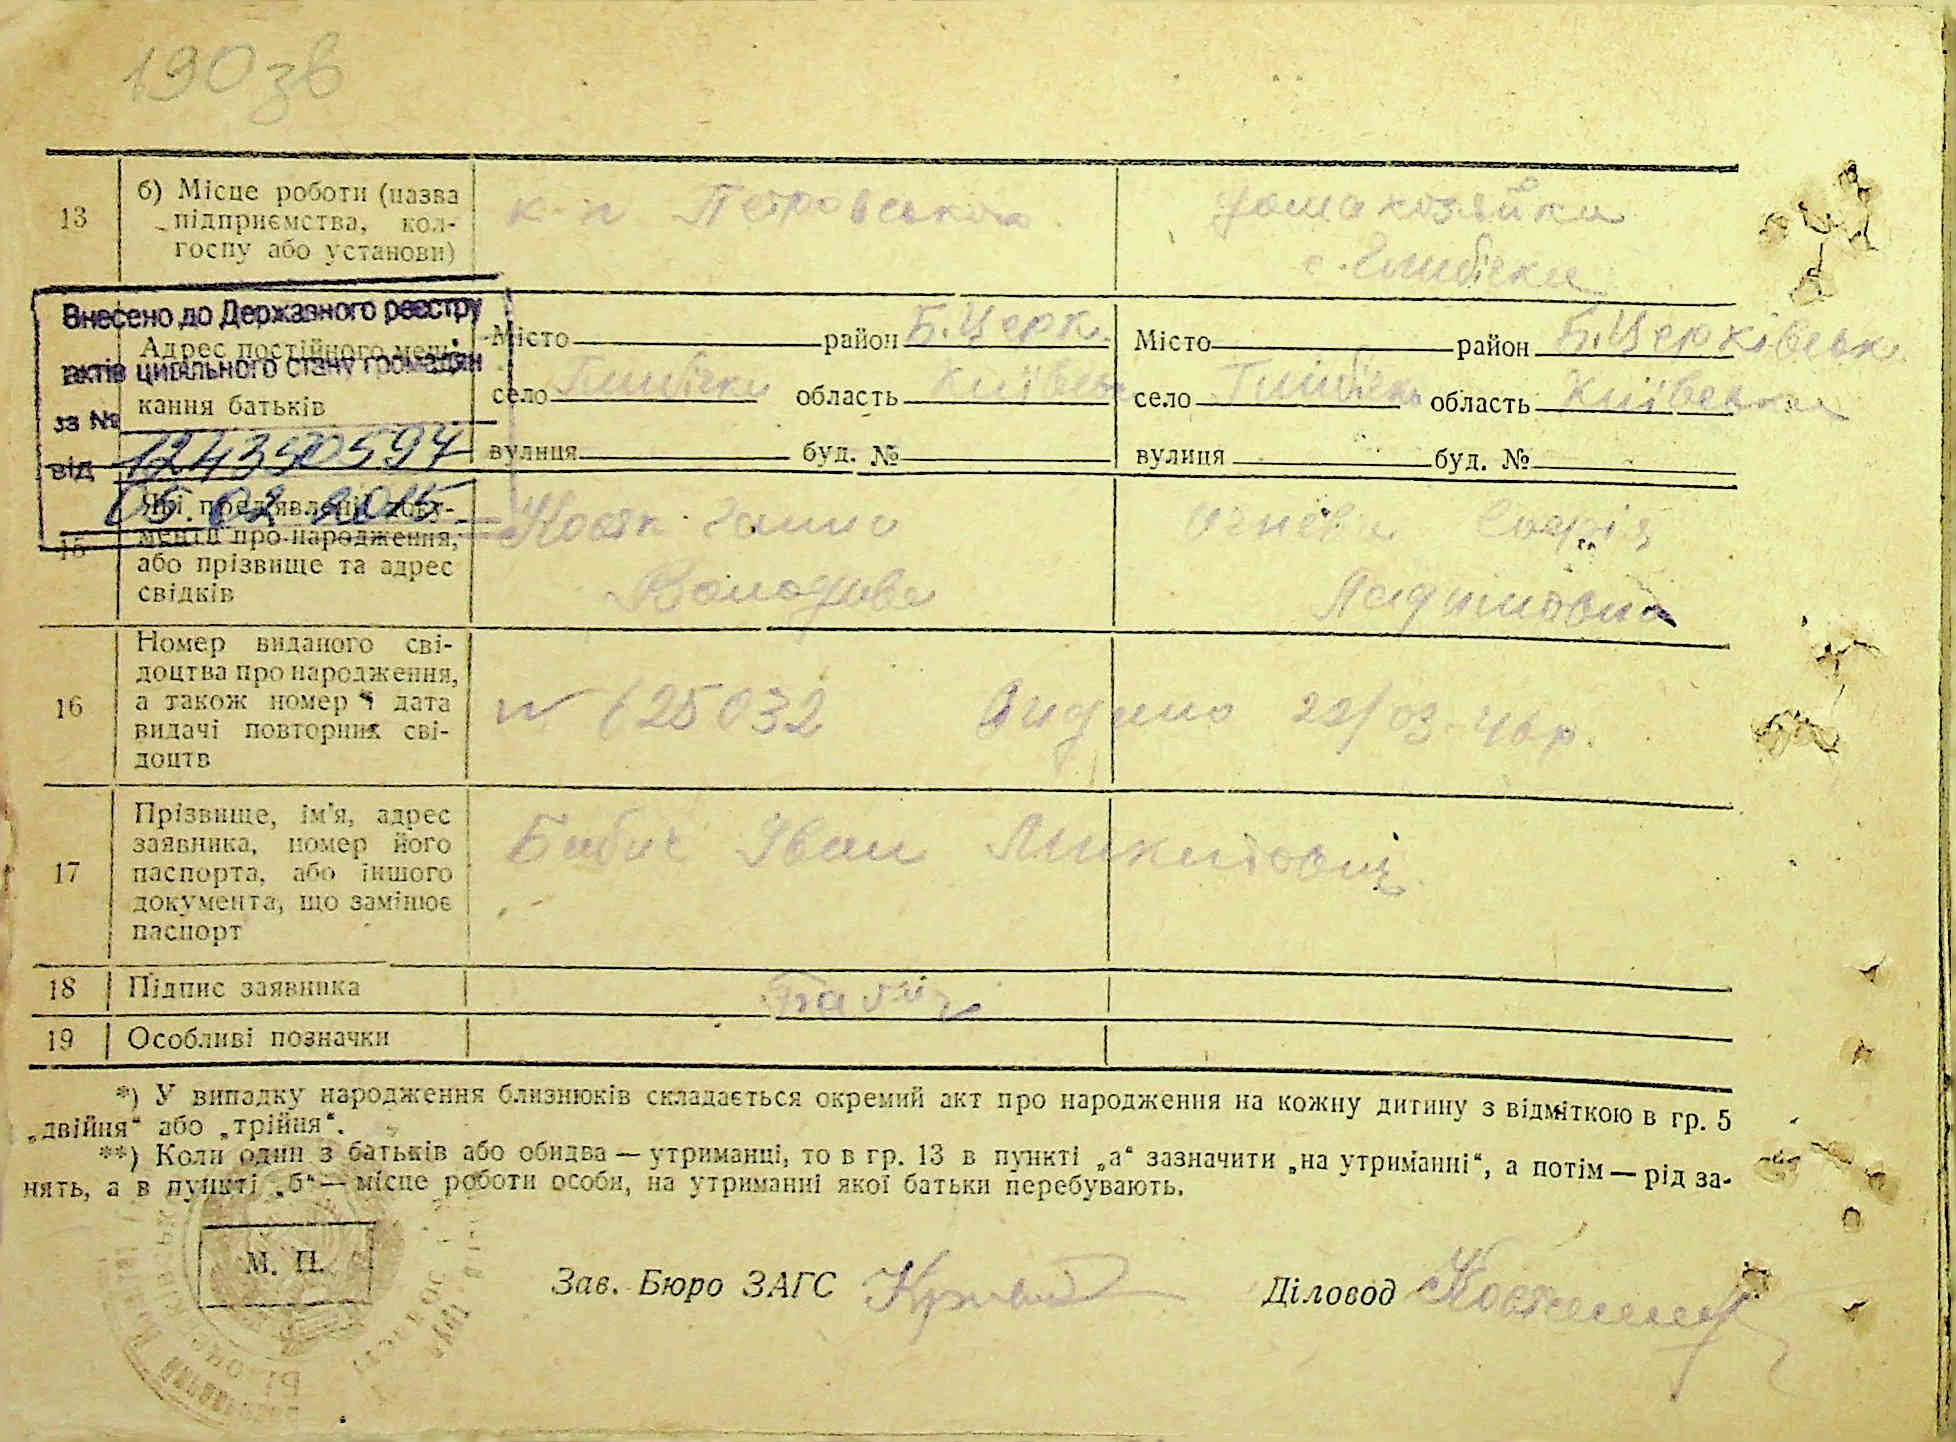 190 зв
13
б) Місце роботи (назва
підприємства, кол-
госпу або установи)
к-п Петровського
домахозяйка
с. Глибічка
Внесено до Державного реєстру
актів цивільного стану громадян
за № 1243505 94
від 05.02 2015
Адрес постійного меш-
кання батьків
Місто район Б. Церк.
село Глибічка область Київськ
вулиця буд. №
Місто район Б. Церківськ
село Глибічка область Київська
вулиця буд. №
15
Які пред'явлені доку-
менти про народження,
або прізвище та адрес
свідків
Ганна
Софія
16
Номер виданого сві-
доцтва про народження,
а також номер і дата
видачі повторних сві-
доцтв
№ 625032 Видано 22/03-46 р.
17
Прізвище, ім'я, адрес
заявника, номер його
паспорта, або іншого
документа, що замінює
паспорт
Бабич Іван Микитович
18
Підпис заявника
Бабич
19
Особливі позначки
*) У випадку народження близнюків складається окремий акт про народження на кожну дитину з відміткою в гр. 5
„двійня“ або „трійня“.
**) Коли один з батьків або обидва — утриманці, то в гр. 13 в пункті „а“ зазначити „на утриманні“, а потім — рід за-
нять, а в пункті „б“ — місце роботи особи, на утриманні якої батьки перебувають.
М. П.
Зав. Бюро ЗАГС
Діловод